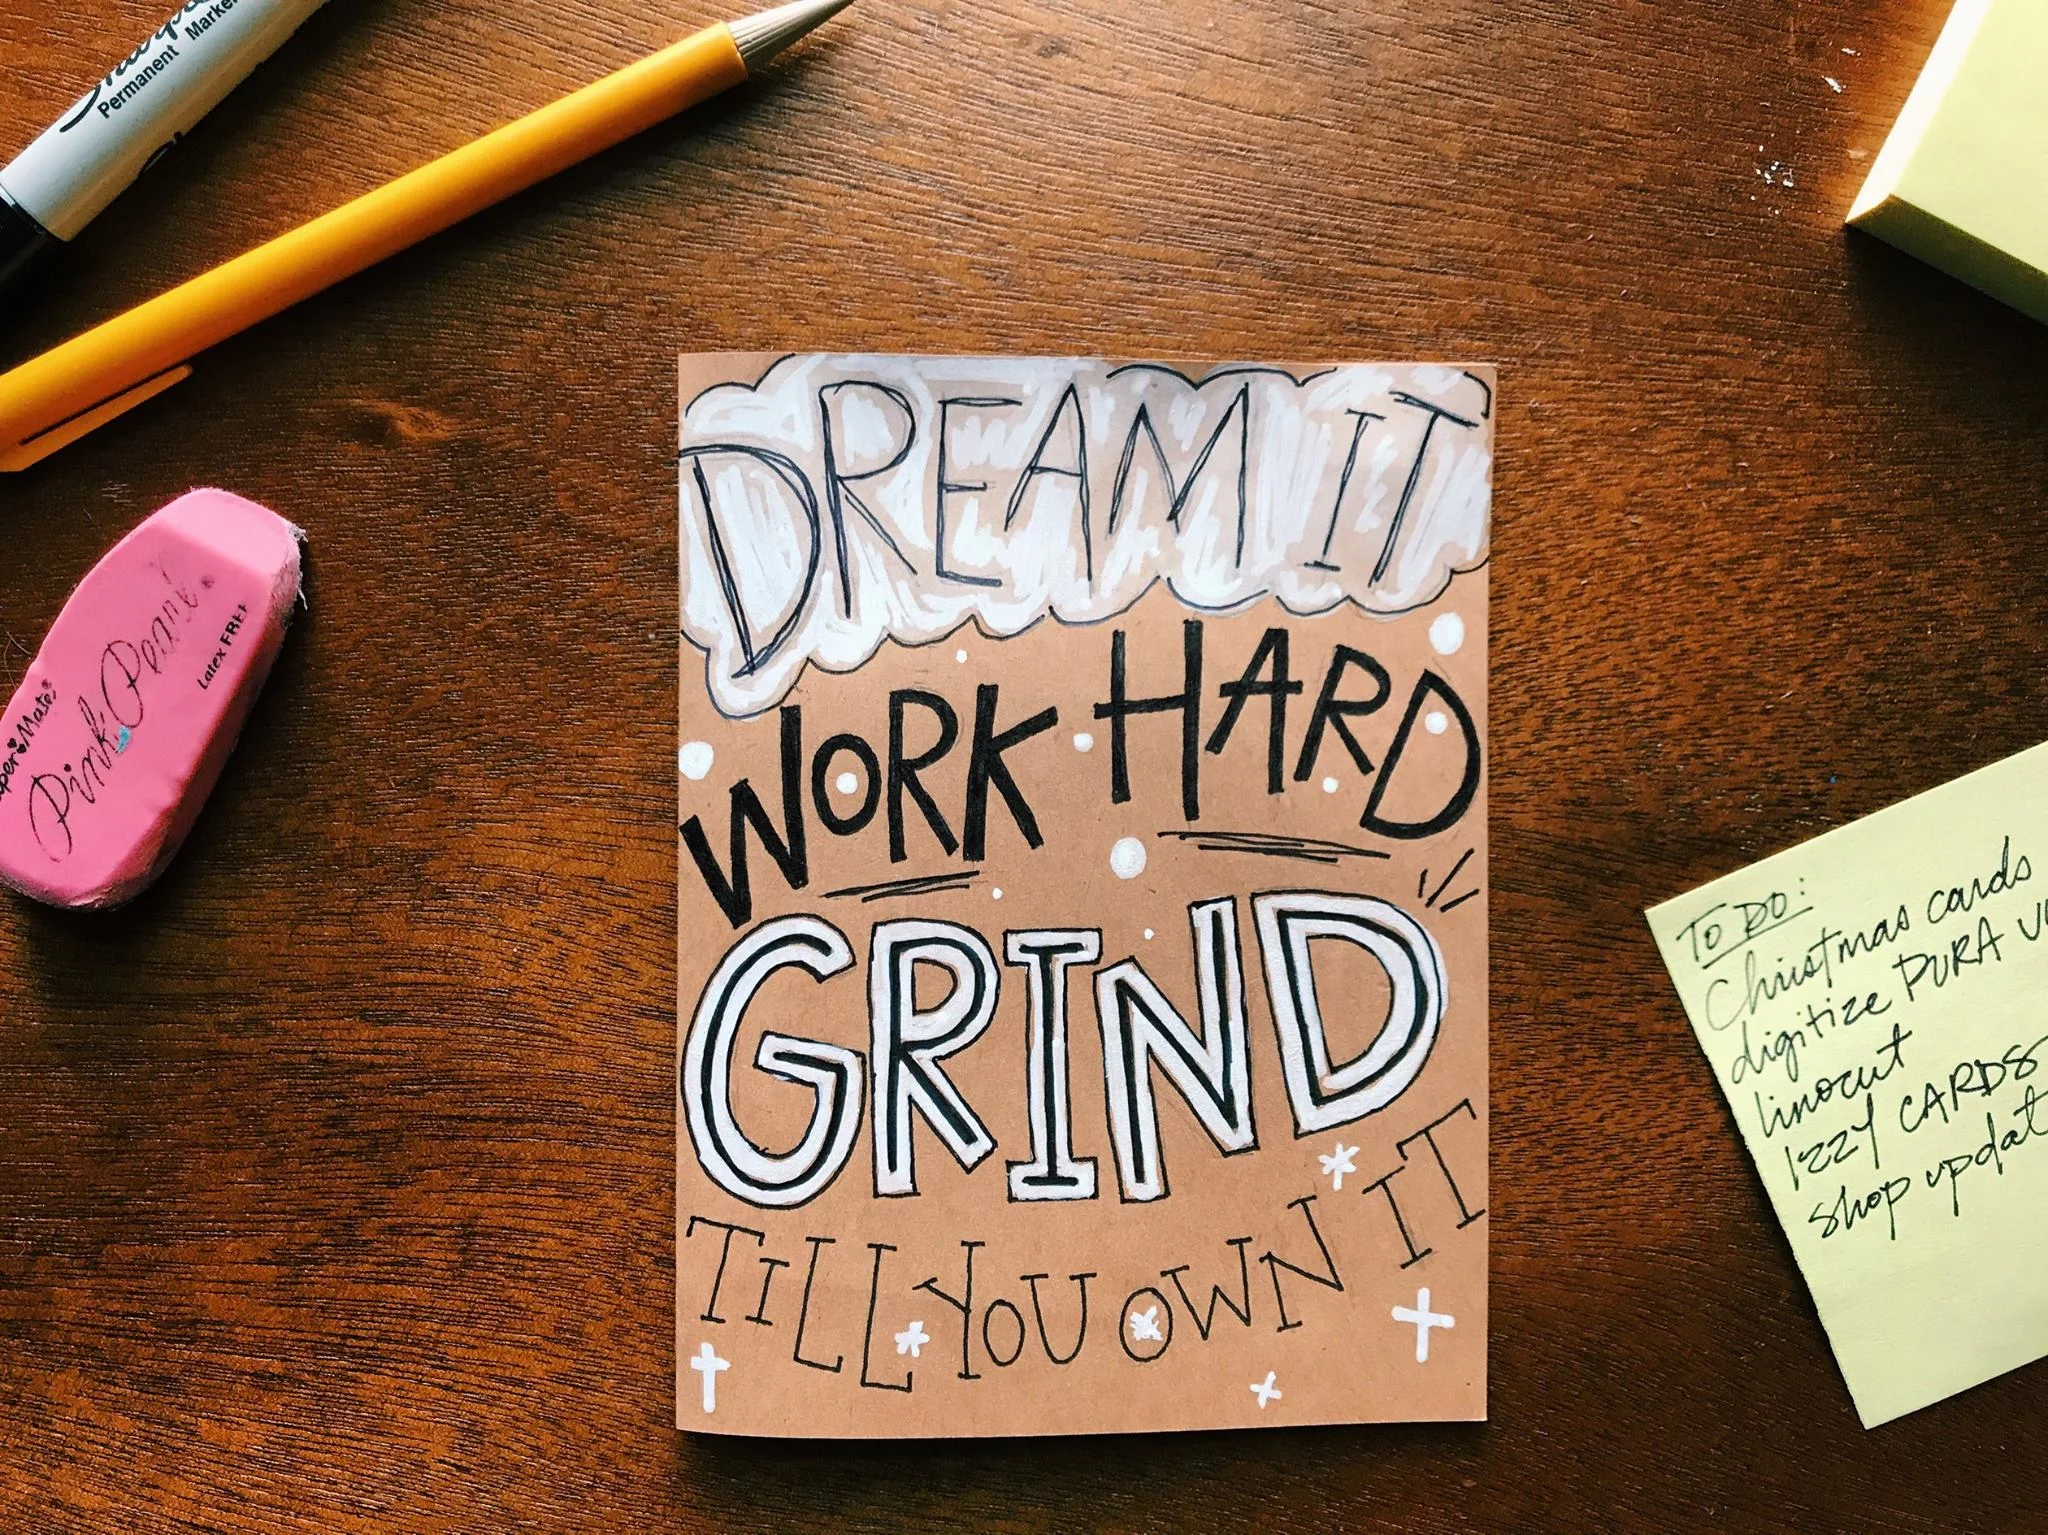 Sharpie
Permanent Marker
DREAM IT
WORK HARD
GRIND
TILL YOU OWN IT
Pink Pearl®
Latex FREE
TO DO:
Christmas cards
digitize PURA
linocut
IZZY CARDS
shop update